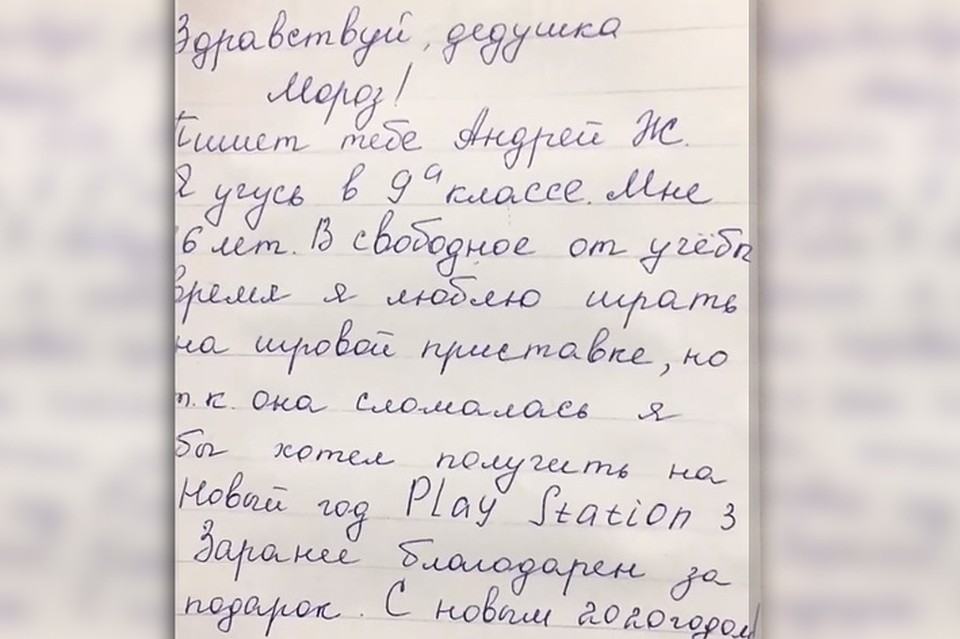 Здравствуй, дедушка
Мороз!
Пишет тебе Андрей Ж.
Я учусь в 9а классе. Мне
16 лет. В свободное от учёбы
время я люблю играть
на игровой приставке, но
т.к. она сломалась я
бы хотел получить на
Новый год Play Station 3
Заранее благодарен за
подарок. С новым 2020 годом!